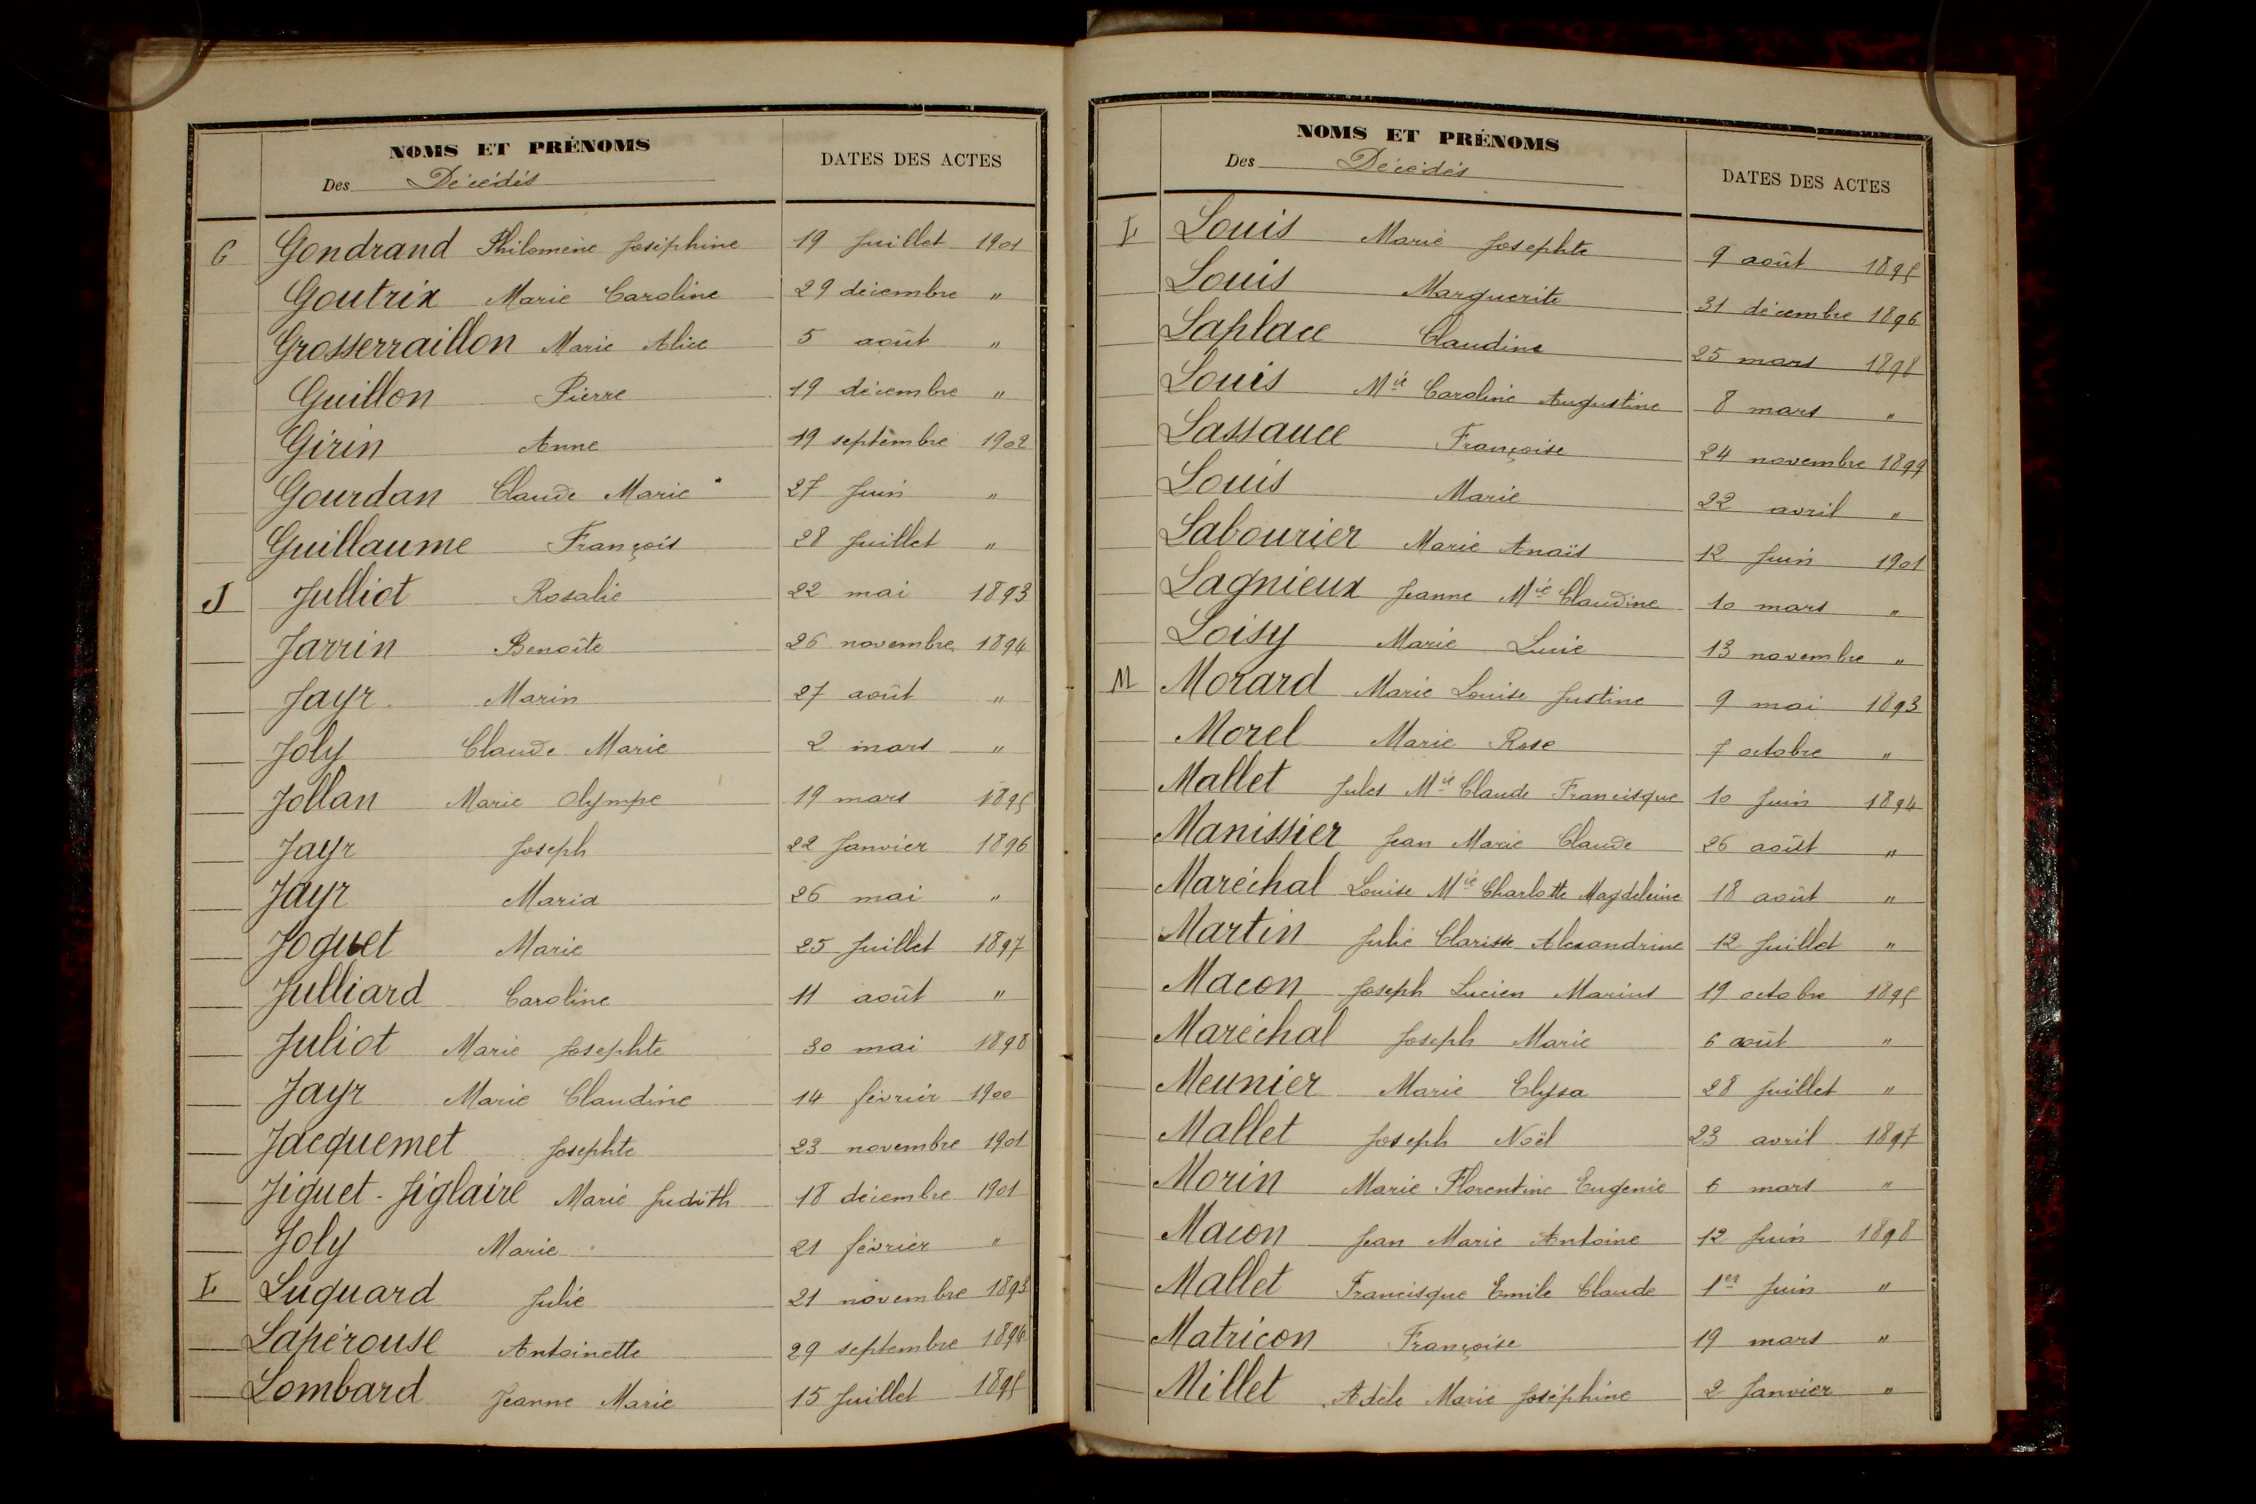 NOMS ET PRÉNOMS
Des Décédés
DATES DES ACTES
G Gondrand Philomène Joséphine 19 Juillet 1901
Goutrix Marie Caroline 29 décembre "
Grosserraillon Marie Alice 5 août "
Guillon Pierre 19 décembre "
Girin Anne 19 septembre 1902
Gourdan Claude Marie 27 Juin "
Guillaume François 28 Juillet "
J Julliot Rosalie 22 mai 1893
Jarrin Benoîte 26 novembre 1894
Jayr Marin 27 août "
Joly Claude Marie 2 mars "
Jollan Marie Olympe 19 mars 1895
Jayr Joseph 22 Janvier 1896
Jayr Maria 26 mai "
Joguet Marie 25 Juillet 1897
Julliard Caroline 11 août "
Juliot Marie Josephte 30 mai 1898
Jayr Marie Claudine 14 février 1900
Jacquemet Josephte 23 novembre 1901
Jiguet-Jiglaire Marie Judith 18 décembre 1901
Joly Marie 21 février "
L Luquard Julie 21 novembre 1893
Lapérouse Antoinette 29 septembre 1894
Lombard Jeanne Marie 15 Juillet 1895
NOMS ET PRÉNOMS
Des Décédés
DATES DES ACTES
L Louis Marie Josephte 9 août 1895
Louis Marguerite 31 décembre 1896
Laplace Claudine 25 mars 1898
Louis Mie Caroline Augustine 8 mars "
Lassauce Françoise 24 novembre 1899
Louis Marie 22 avril "
Labourier Marie Anaïs 12 Juin 1901
Lagnieux Jeanne Mie Claudine 10 mars "
Loisy Marie Lucie 13 novembre "
M Morard Marie Louise Justine 9 mai 1893
Morel Marie Rose 7 octobre "
Mallet Jules Mie Claude Francisque 10 Juin 1894
Manissier Jean Marie Claude 26 août "
Maréchal Louise Mie Charlotte Magdeleine 18 août "
Martin Julie Clarisse Alexandrine 12 Juillet "
Macon Joseph Lucien Marius 19 octobre 1895
Maréchal Joseph Marie 6 août "
Meunier Marie Elysa 28 Juillet "
Mallet Joseph Noël 23 avril 1897
Morin Marie Florentine Eugenie 6 mars "
Macon Jean Marie Antoine 12 Juin 1898
Mallet Francisque Emile Claude 1er Juin "
Matricon Françoise 19 mars "
Millet Adèle Marie Joséphine 2 Janvier "